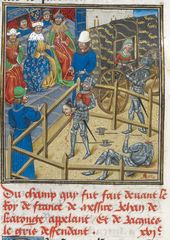 Du champ quy fut fait deuant le
Roy de france de messire Jehan de
Karonge appelant Et de Jacques
le gris deffendant. xvj.e